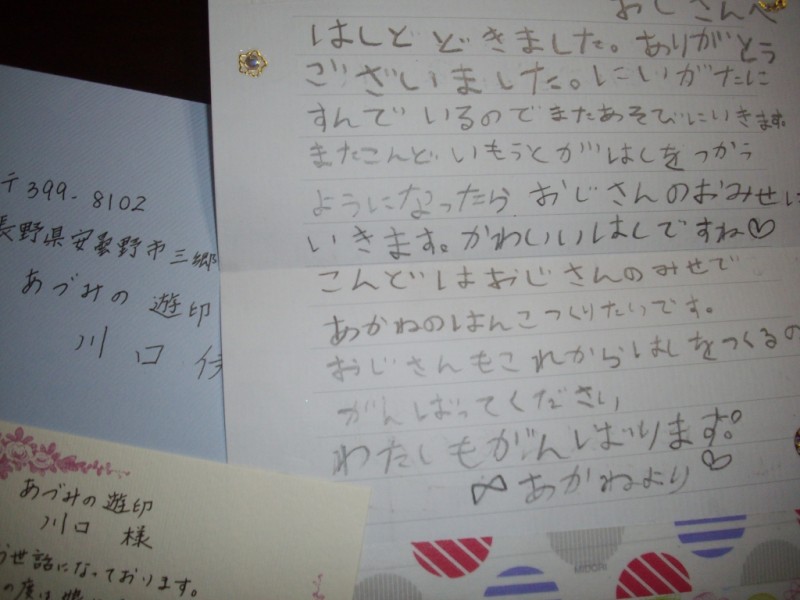 おじさんへ
はしとどきました。ありがとう
ございました。にいがたに
すんでいるのでまたあそびにいきます。
またこんど、いもうとがはしをつかう
ようになったらおじさんのおみせに
いきます。かわいいはしですね♡
こんどはおじさんのみせで
あかねのはんこつくりたいです。
おじさんもこれからはしをつくるの
がんばってください
わたしもがんばります。
あかねより
〒399-8102
長野県安曇野市三郷
あづみの遊印
川口
あづみの遊印
川口 様
世話になっております。
の度は